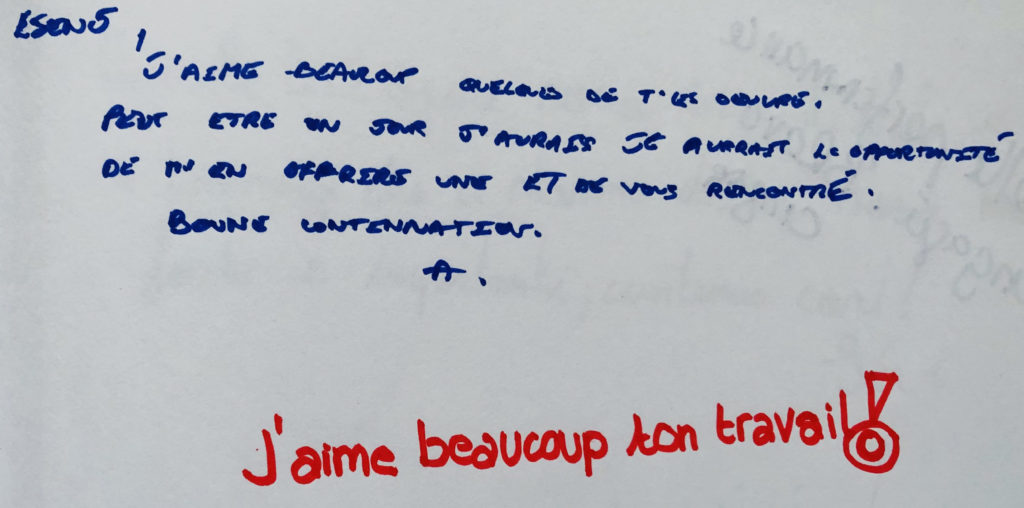 J'AIME BEAUCOUP QUELQUES DE T'ES OEUVRE.
PEUT ETRE UN JOUR J'AURAIS JE AURAIT L'OPPORTUNITÉ
DE M'EN OFFRIRE UNE ET DE VOUS RENCONTRÉ.
BONNE
A.
J'aime beaucoup ton travail!